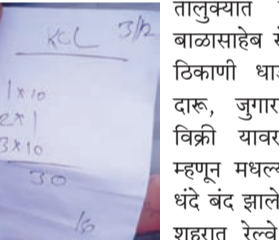 3/12
KCL
1 × 10
2 × 1
3 × 10
30
तालुक्यात
बाळासाहेब
ठिकाणी
दारू, जुगार
विक्री यावर
म्हणून मधल्य
धंदे बंद झाले
शहरात रेल्वे